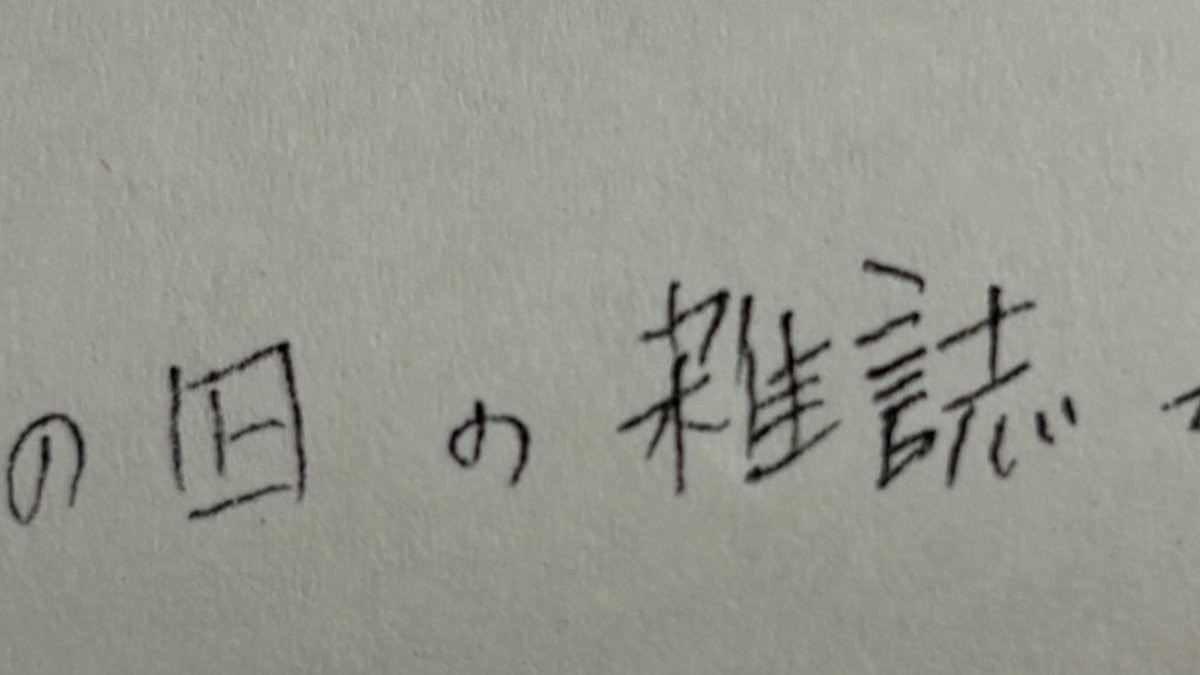 の の雑誌